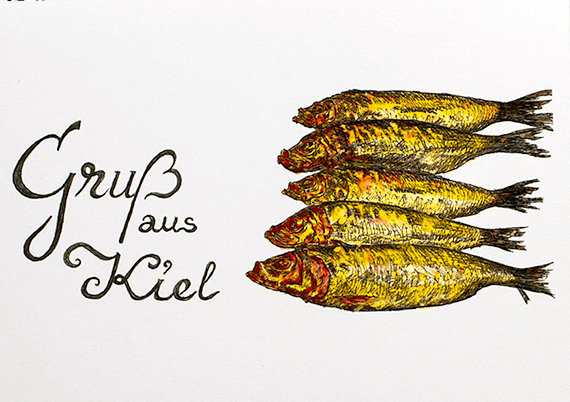 Gruß
aus
Kiel